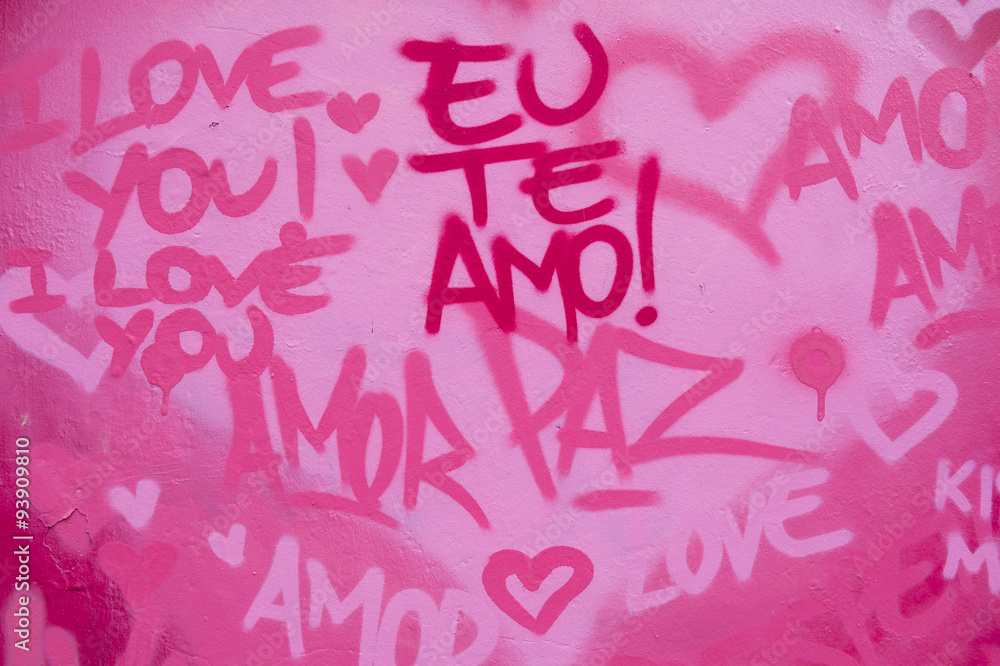 I LOVE
YOU!
I LOVE
YOU
EU
TE
AMO!
AMO
AM
AMOR PAZ
AMOR
LOVE
KI
M
Adobe Stock | #93909810